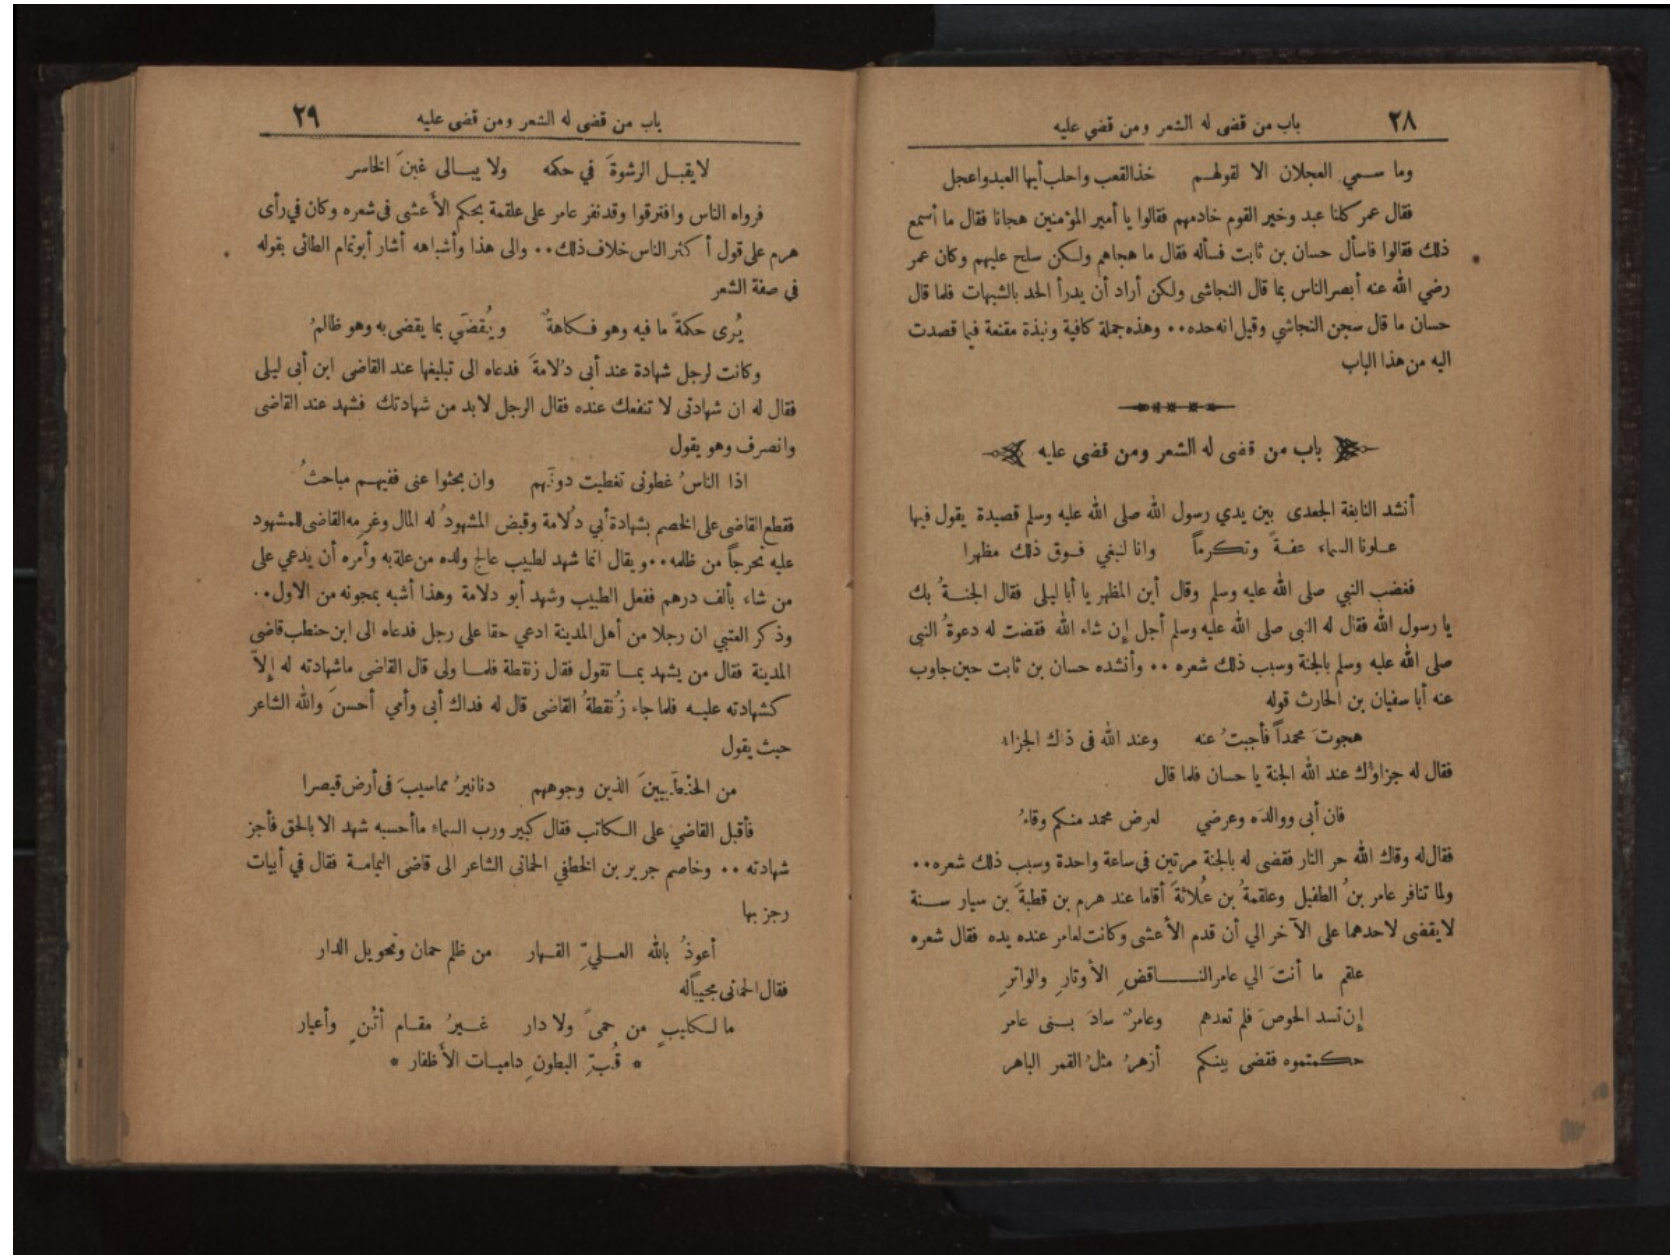 ٢٨ باب من قضى له الشعر ومن قضي عليه
وما سمي العجلان الا لقولهم خذ القعب واحلب أيها العبد واعجل
فقال عمر كلنا عبد وخير القوم خادمهم فقالوا يا أمير المؤمنين هجانا فقال ما أسمع
ذلك فقالوا فاسأل حسان بن ثابت فسأله فقال ما هجاهم ولكن سلح عليهم وكان عمر
رضي الله عنه أبصر الناس بما قال النجاشى ولكن أراد أن يدرأ الحد بالشبهات فلما قال
حسان ما قال سجن النجاشي وقيل انه حده٠٠ وهذه جملة كافية ونبذة مقنعة فيما قصدت
اليه من هذا الباب
باب من قضى له الشعر ومن قضي عليه
أنشد النابغة الجعدى بين يدي رسول الله صلى الله عليه وسلم قصيدة يقول فيها
علونا السماء عفةً وتكرماً وانا لنبغي فوق ذلك مظهرا
فغضب النبي صلى الله عليه وسلم وقال أين المظهر يا أبا ليلى فقال الجنةُ بك
يا رسول الله فقال له النبى صلى الله عليه وسلم أجل إن شاء الله فقضت له دعوةُ النبى
صلى الله عليه وسلم بالجنة وسبب ذلك شعره ٠٠ وأنشده حسان بن ثابت حين جاوب
عنه أبا سفيان بن الحارث قوله
هجوتَ محمداً فأجبتُ عنه وعند الله فى ذاك الجزاء
فقال له جزاؤك عند الله الجنة يا حسان فلما قال
فان أبى ووالدَه وعرضي لعرض محمد منكم وقاءُ
فقال له وقاك الله حر النار فقضى له بالجنة مرتين فى ساعة واحدة وسبب ذلك شعره٠٠
ولما تنافر عامر بنُ الطفيل وعلقمةُ بن عُلاثةَ أقاما عند هرم بن قطبةَ بن سيار سنة
لا يقضى لاحدهما على الآخر الي أن قدم الأعشى وكانت لعامر عنده يده فقال شعره
علقم ما أنتَ الي عامر الناقضِ الأوتارِ والواترِ
إن تسد الحوصَ فلم تعدهم وعامرٌ سادَ بنى عامر
حكمتموه فقضى بينكم أزهرُ مثلُ القمر الباهر
باب من قضى له الشعر ومن قضى عليه ٢٩
لا يقبل الرشوةَ في حكمه ولا يبالى غبنَ الخاسر
فرواه الناس وافترقوا وقد نفر عامر على علقمة بحكم الأعشى فى شعره وكان في رأى
هرم على قول أكثر الناس خلاف ذلك٠٠ والى هذا وأشباهه أشار أبو تمام الطائى بقوله
فى صفة الشعر
يُرى حكمةً ما فيه وهو فكاهةٌ ويُقضَى بما يقضى به وهو ظالمُ
وكانت لرجل شهادة عند أبى دُلامةَ فدعاه الى تبليغها عند القاضى ابن أبى ليلى
فقال له ان شهادتى لا تنفعك عنده فقال الرجل لا بد من شهادتك فشهد عند القاضى
وانصرف وهو يقول
اذا الناسُ غطونى تغطيت دونَهم وان بحثوا عنى ففيهم مباحثُ
فقطع القاضى على الخصم بشهادة أبي دُلامة وقبض المشهودُ له المال وغرمه القاضى للمشهود
عليه تحرجاً من ظلمه٠٠ ويقال انما شهد لطبيب عالج ولده من علة به وأمره أن يدعي على
من شاء بألف درهم ففعل الطبيب وشهد أبو دلامة وهذا أشبه بمجونه من الاول٠٠
وذكر العتبي ان رجلا من أهل المدينة ادعي حقا على رجل فدعاه الى ابن حنطب قاضى
المدينة فقال من يشهد بما تقول فقال زنقطة فلما ولى قال القاضى ما شهادته له إلاّ
كشهادته عليه فلما جاء زُنقطةُ القاضى قال له فداك أبى وأمي أحسنَ والله الشاعر
حيث يقول
من الحنطَبيينَ الذين وجوههم دنانيرُ مما سيبَ فى أرض قيصرا
فأقبل القاضي على الكاتب فقال كبير ورب السماء ما أحسبه شهد الا بالحق فأجز
شهادته ٠٠ وخاصم جرير بن الخطفي الحمانى الشاعر الى قاضى اليمامة فقال في أبيات
رجز بها
أعوذُ بالله العليِّ القهار من ظلم حمان وتحويل الدار
فقال الحمانى مجيباً له
ما لكليبٍ من حمىً ولا دار غيرُ مقام أتُنٍ وأعيار
* قُبِّ البطونِ داميات الأظفار *